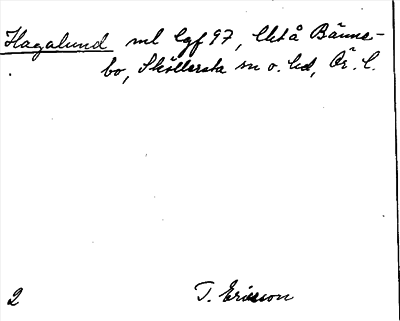 Hagalund ml lgf 97, lht å Bänne-
bo, Sköllersta sn o. hd, Ör. l.
2 T. Ericsson